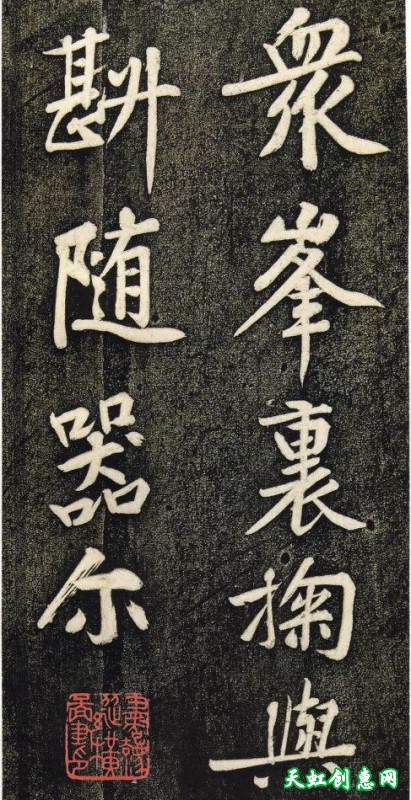 衆峯裏掬與
斟随器尔
天虹创惠网